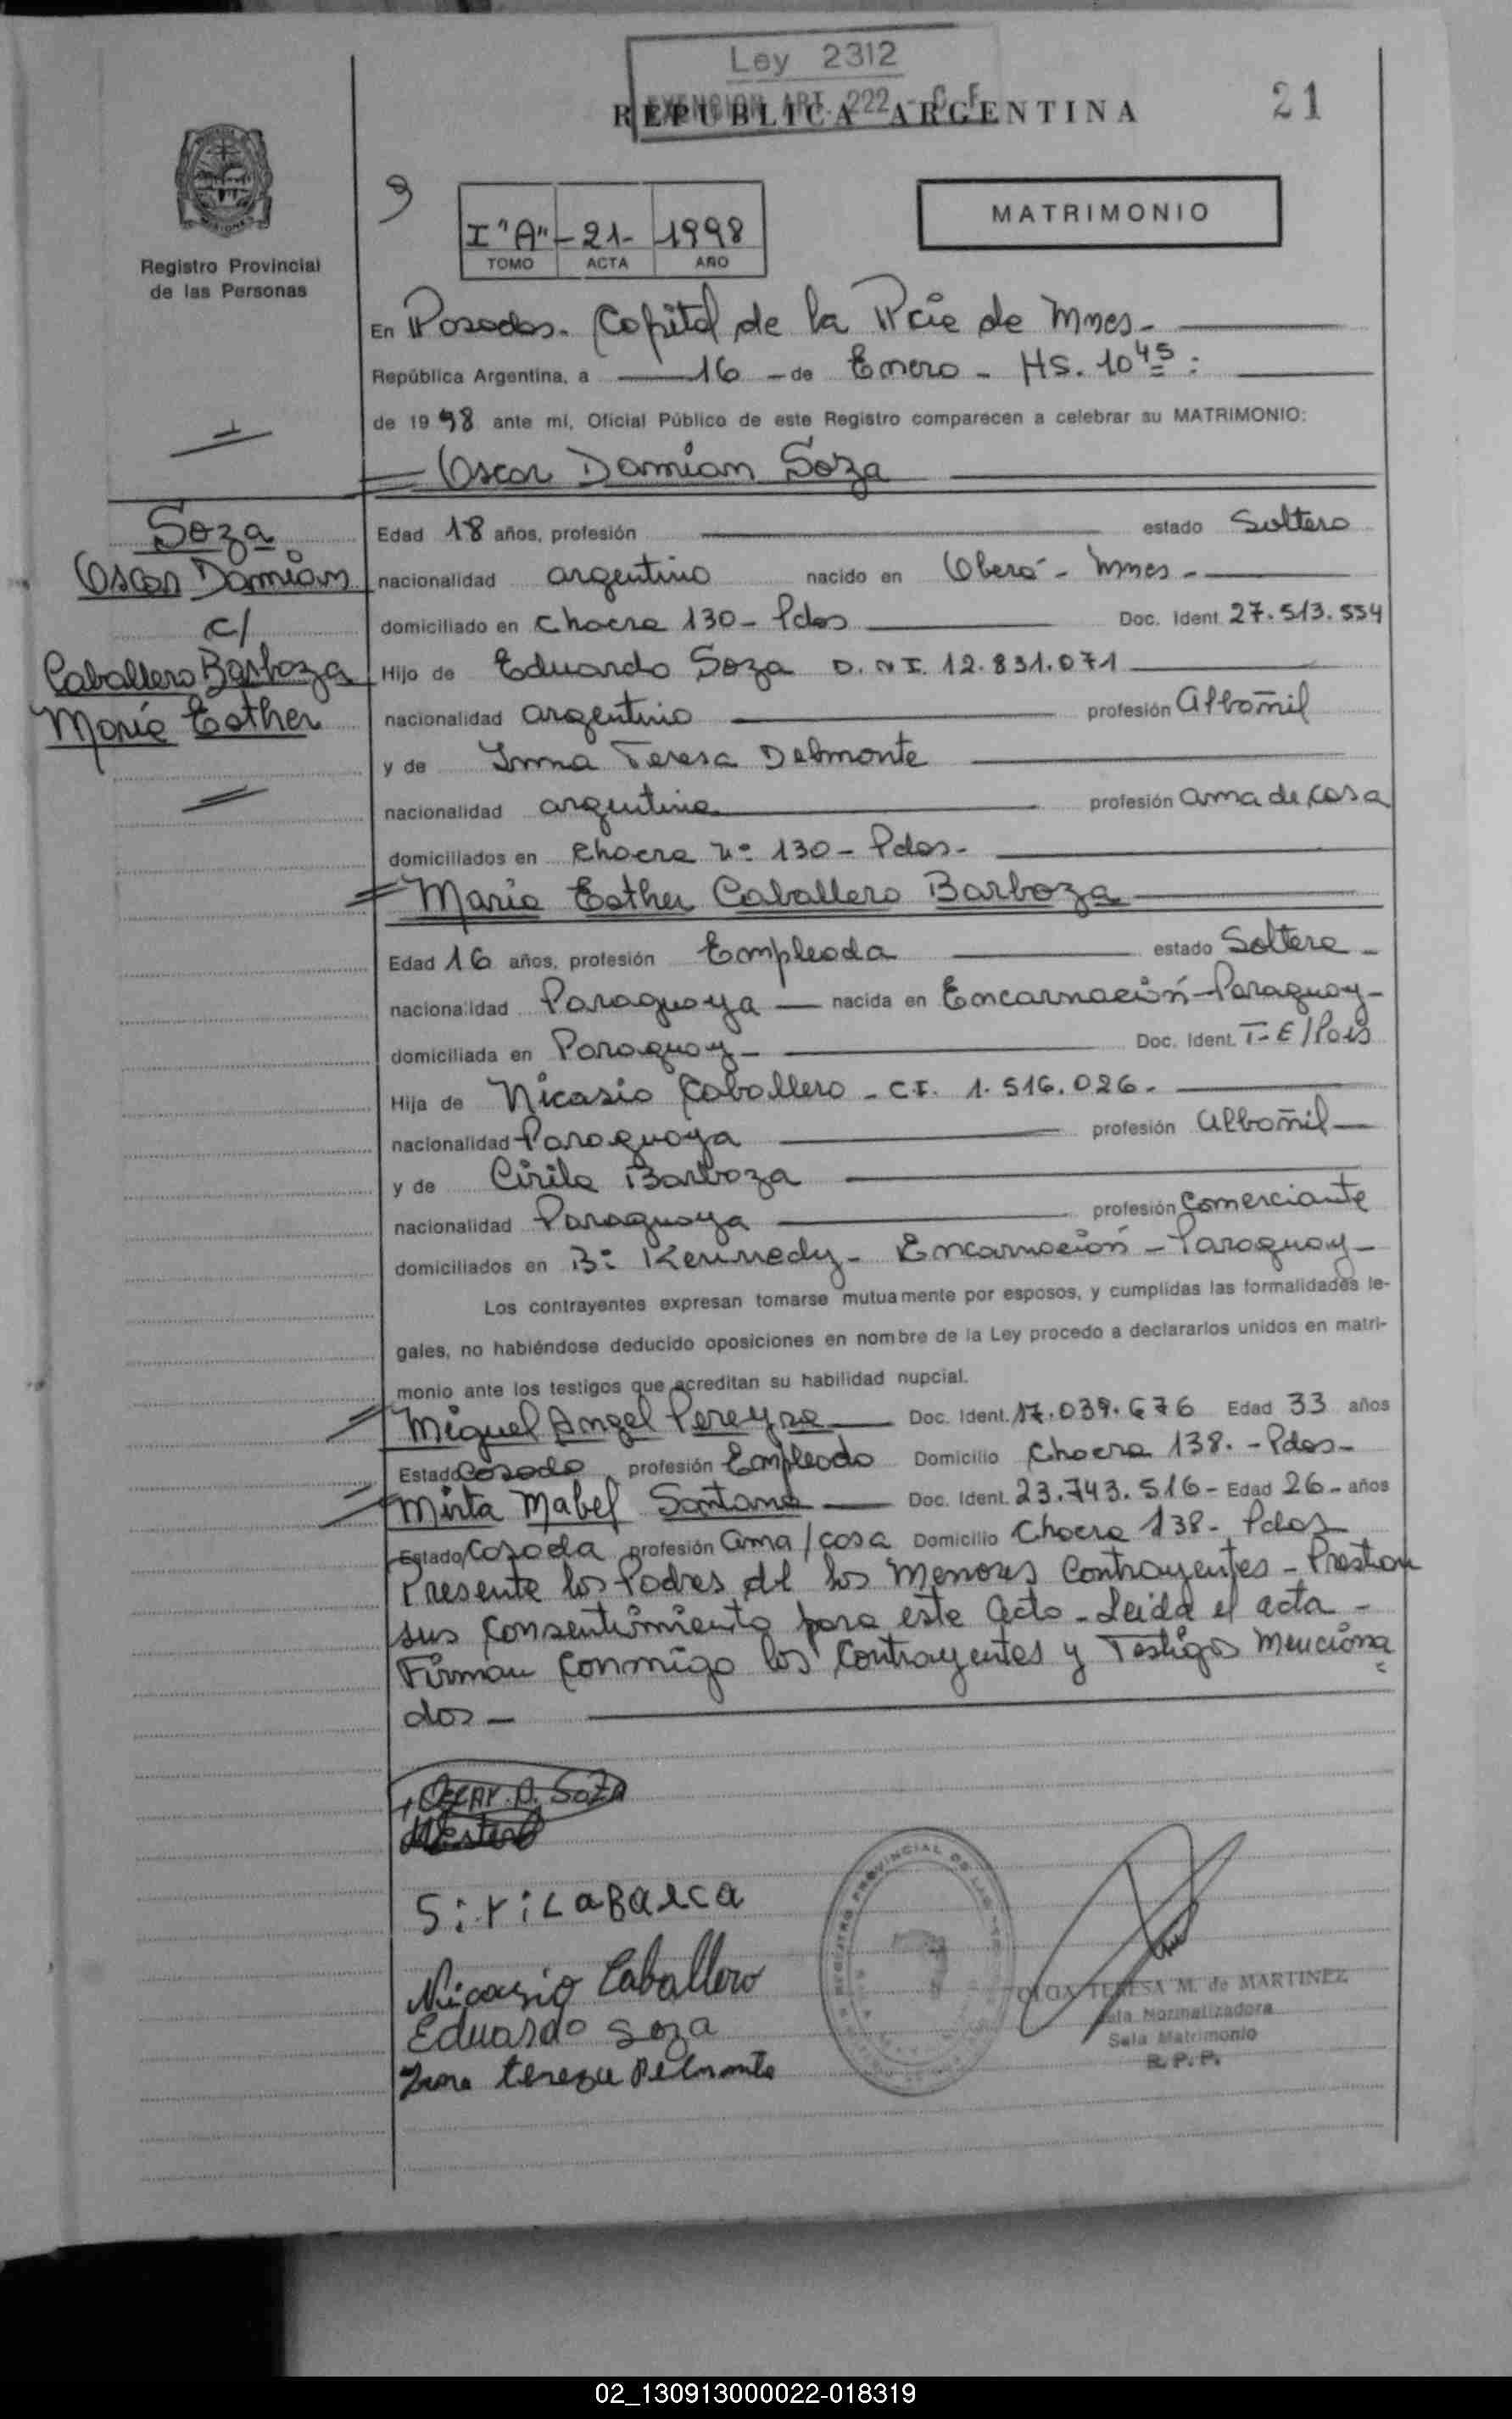 Ley 2312
EXENCION ART. 222 - C. F.
REPUBLICA ARGENTINA
21
9
I "A" - 21 - 1998
TOMO ACTA AÑO
MATRIMONIO
Registro Provincial
de las Personas
En Posadas. Capital de la Pcie de Mnes.
República Argentina, a 16 - de Enero - HS. 10 45 :
de 1998 ante mí, Oficial Público de este Registro comparecen a celebrar su MATRIMONIO:
Oscar Damian Soza
Soza
Oscar Damian
c/
Caballero Barboza
Maria Esther
Edad 18 años, profesión estado Soltero
nacionalidad argentino nacido en Oberá - Mnes -
domiciliado en chacra 130 - Pdas Doc. Ident. 27.513.534
Hijo de Eduardo Soza D.N.I. 12.831.071
nacionalidad argentino profesión Albañil
y de Irma Teresa Delmonte
nacionalidad argentina profesión ama de casa
domiciliados en chacra nº 130 - Pdas -
Maria Esther Caballero Barboza
Edad 16 años, profesión Empleada estado Soltera -
nacionalidad Paraguaya nacida en Encarnación - Paraguay -
domiciliada en Paraguay - Doc. Ident. T-E/Pais
Hija de Nicasio Caballero - C.I. 1.516.026 -
nacionalidad Paraguaya profesión albañil
y de Cirila Barboza
nacionalidad Paraguaya profesión Comerciante
domiciliados en Bº Kennedy - Encarnación - Paraguay -
Los contrayentes expresan tomarse mutuamente por esposos, y cumplidas las formalidades le-
gales, no habiéndose deducido oposiciones en nombre de la Ley procedo a declararlos unidos en matri-
monio ante los testigos que acreditan su habilidad nupcial.
Miguel Angel Pereyra Doc. Ident. 17.039.676 Edad 33 años
Estado Casado profesión Empleado Domicilio Chacra 138. - Pdas -
Mirta Mabel Santana Doc. Ident. 23.743.516 - Edad 26 - años
Estado Casada profesión ama/casa Domicilio Chacra 138 - Pdas
Presente los Padres de los Menores Contrayentes - Prestan
sus Consentimiento para este Acto - Leida el acta -
Firman conmigo los Contrayentes y Testigos menciona
dos -
Oscar. D. Soza
SiriLaBaRca
Nicasio Caballero
Eduardo Soza
Irma tereza Delmonte
REGISTRO PROVINCIAL DE LAS
OLGA TERESA M. de MARTINEZ
Normalizadora
Sala Matrimonio
R. P. P.
02_130913000022-018319